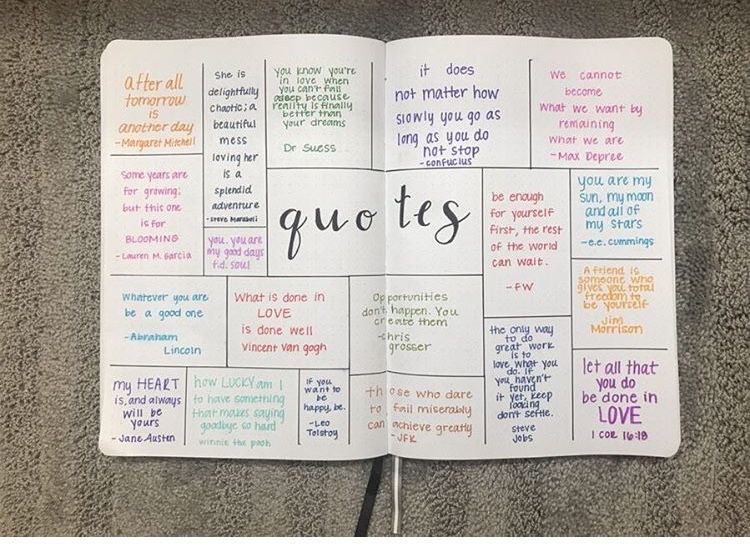 After all
tomorrow
is
another day
-Margaret Mitchell
She is
delightfully
chaotic; a
beautiful
mess
loving her
is a
splendid
adventure
-Steve Maraboli
you know you're
in love when
you can't fall
asleep because
reality is finally
better than
your dreams
Dr Suess
it does
not matter how
slowly you go as
long as you do
not stop
-confucius
We cannot
become
what we want by
remaining
what we are
-Max Depree
Some years are
for growing;
but this one
is for
BLOOMING
-Lauren M. Garcia
you. you are
my good days
f.d. soul
quotes
be enough
for yourself
first, the rest
of the world
can wait.
-FW
you are my
sun, my moon
and all of
my stars
-e.e. cummings
Whatever you are
be a good one
-Abraham
Lincoln
What is done in
LOVE
is done well
Vincent Van gogh
Opportunities
don't happen. You
create them
-chris
grosser
A friend is
someone who
gives you total
freedom to
be yourself
Jim
Morrison
my HEART
is, and always
will be
yours
-Jane Austen
how LUCKY am I
to have something
that makes saying
goodbye so hard
winnie the pooh
If you
want to
be
happy, be.
-Leo
Tolstoy
those who dare
to fail miserably
can achieve greatly
-JFK
the only way
to do
great work
is to
love what you
do. If
you haven't
found
it yet, keep
looking
don't settle.
Steve
Jobs
let all that
you do
be done in
LOVE
1 COR 16:18